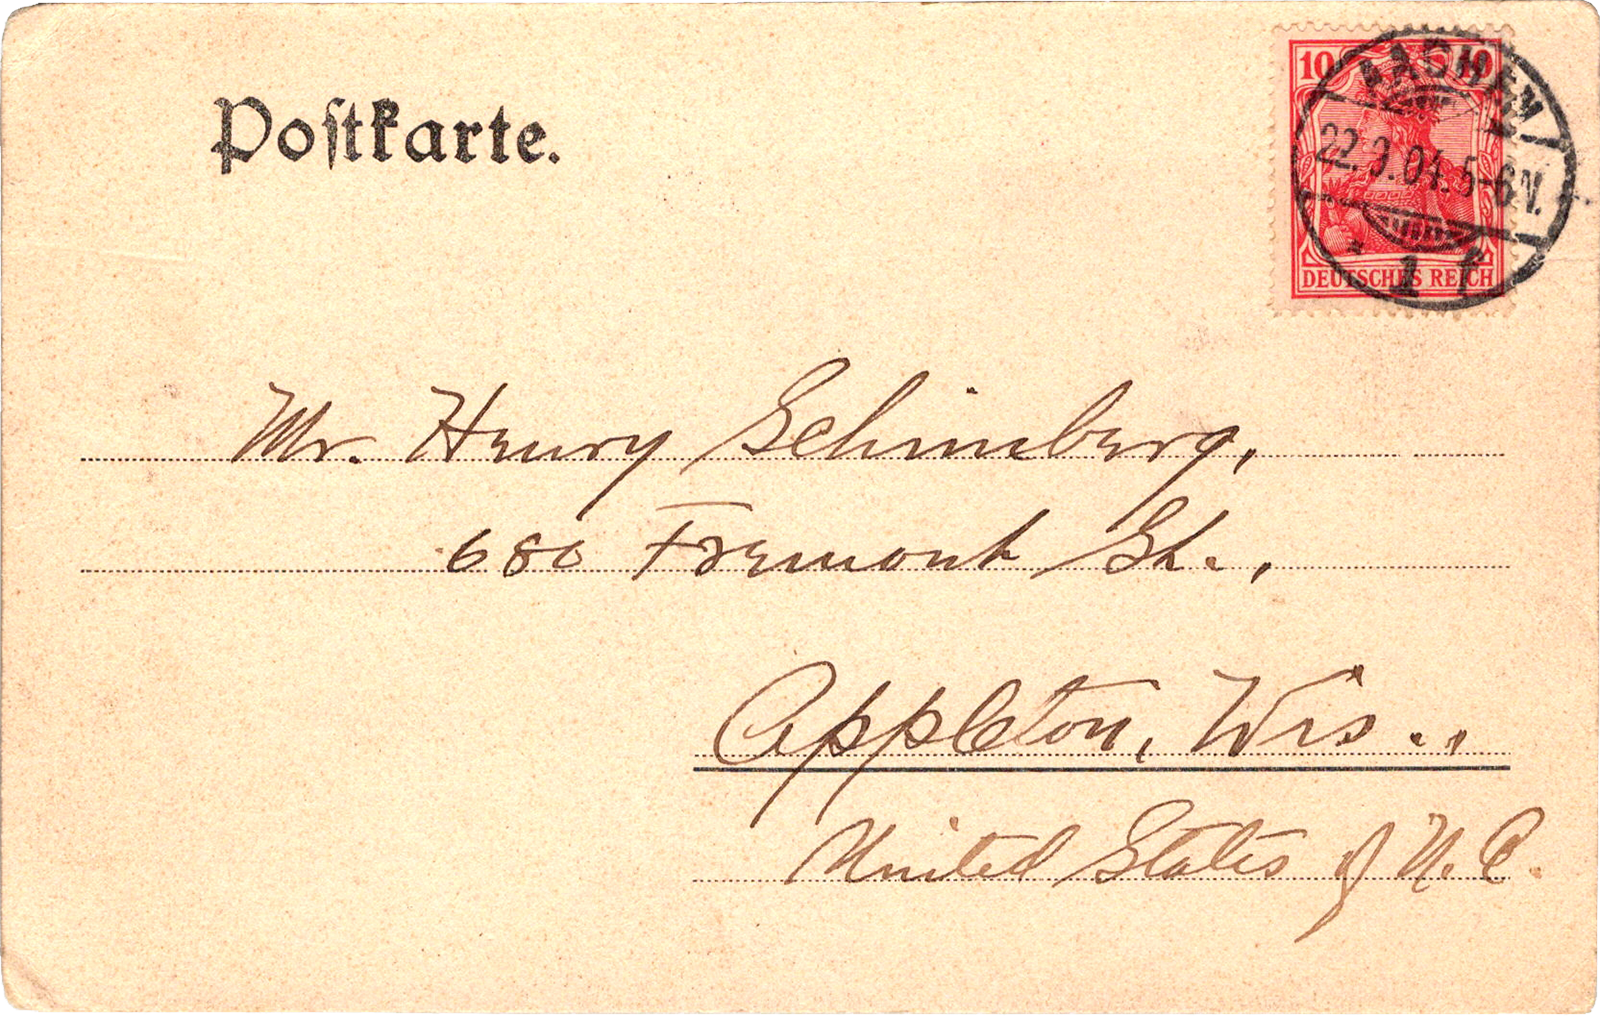 Poſtkarte.
10 10
AACHEN
22.9.04.5-6N.
* 1 f
DEUTSCHES REICH
Mr. Henry Schimberg,
680 Fremont St.,
Appleton, Wis.,
United States of N. A.